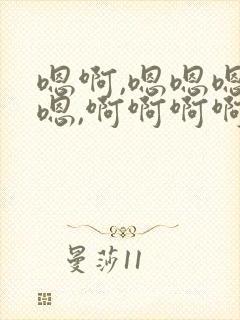 嗯啊,嗯嗯嗯
嗯,啊啊啊啊
曼莎11